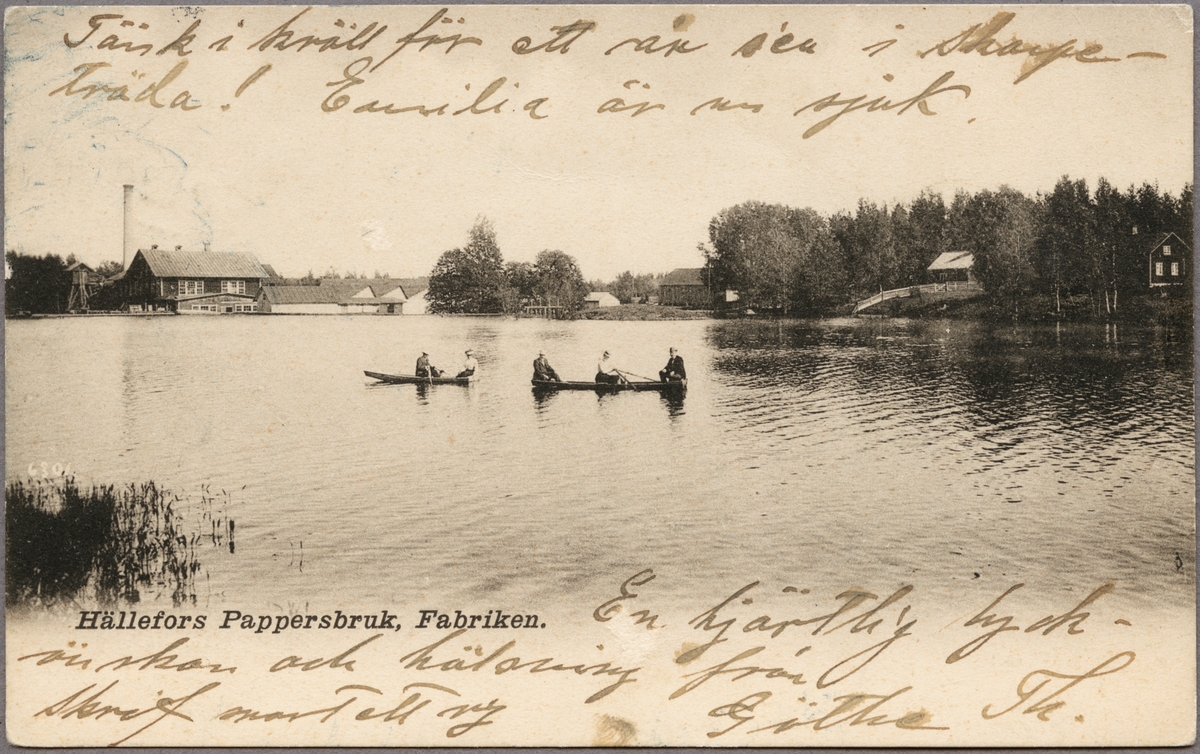 Tänk i kväll för ett år sen i skarpe-
träda! Emilia är nu sjuk.
6301
Hällefors Pappersbruk, Fabriken.
En hjärtlig lyck-
önskan och hälsning från
Göthe Th.
skrif snart ett